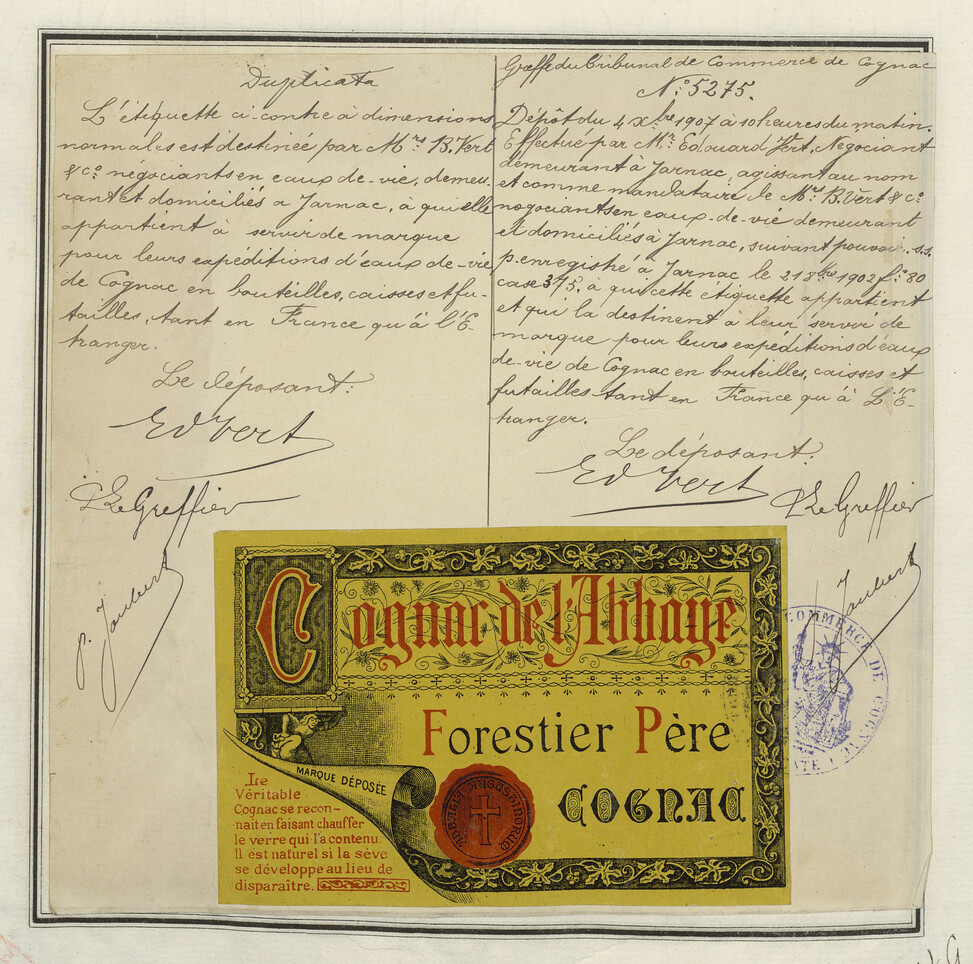 Duplicata
L'étiquette ci-contre à dimensions
normales est destinée par Mrs B. Vert
& Co négociants en eaux-de-vie, demeu-
rant et domiciliés à Jarnac, à qui elle
appartient à servir de marque
pour leurs expéditions d'eaux-de-vie
de Cognac en bouteilles, caisses et fu-
tailles, tant en France qu'à l'É-
tranger.
Le déposant:
Ed Vert
Le Greffier
p. Joubert
Greffe du Tribunal de Commerce de Cognac
No: 5275.
Dépôt du 4 Xbre 1907 à 10 heures du matin.
Effectué par Mr Edouard Vert, Négociant
demeurant à Jarnac, agissant au nom
et comme mandataire de Mrs B. Vert & Co
négociants en eaux-de-vie demeurant
et domiciliés à Jarnac, suivant pouvoir s.s.
p. enregistré à Jarnac le 21 8bre 1902 fo: 80
case 375, à qui cette étiquette appartient
et qui la destinent à leur servir de
marque pour leurs expéditions d'eaux
de-vie de Cognac en bouteilles, caisses et
futailles tant en France qu'à L'É-
tranger.
Le déposant:
Ed Vert
Le Greffier
Joubert
Cognac de l'Abbaye
Forestier Père
COGNAC
MARQUE DÉPOSÉE
Le
Véritable
Cognac se recon-
nait en faisant chauffer
le verre qui l'a contenu.
Il est naturel si la sève
se développe au lieu de
disparaître.
ABBATIA AUGUSTINORUM
COMMERCE DE COGNAC